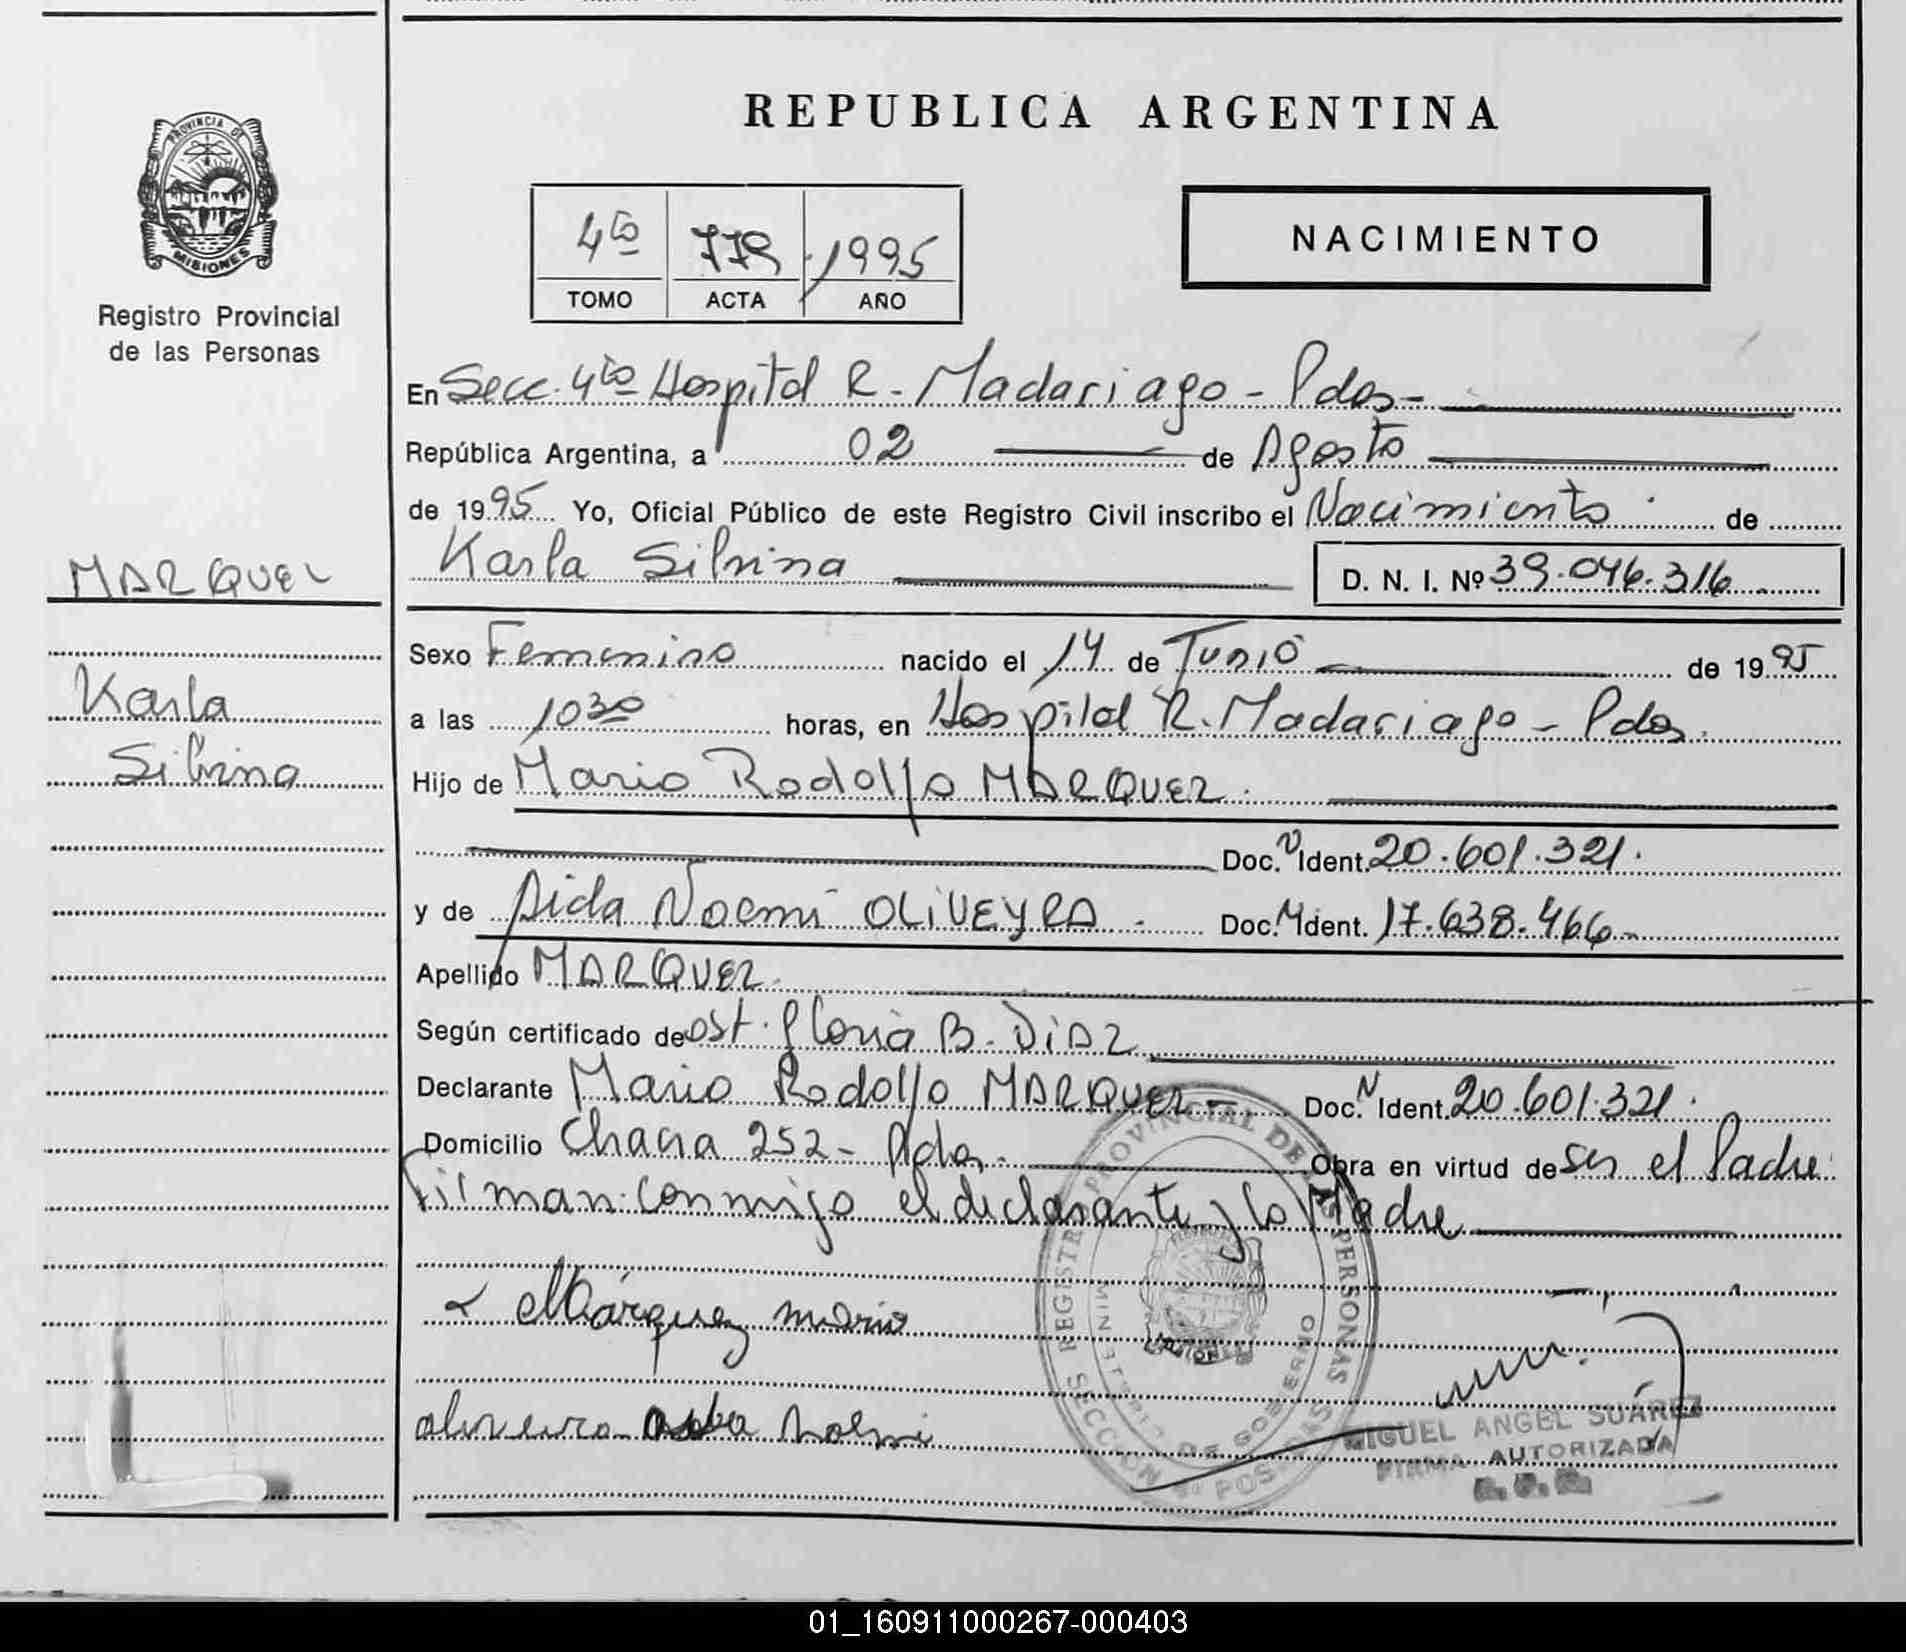 REPUBLICA ARGENTINA
PROVINCIA DE
MISIONES
Registro Provincial
de las Personas
4to 779 1995
TOMO ACTA AÑO
NACIMIENTO
En Secc. 4to Hospital R. Madariaga - Pdas -
República Argentina, a 02 de Agosto
de 1995 Yo, Oficial Público de este Registro Civil inscribo el Nacimiento de
Karla Silvina D. N. I. Nº 39.046.316
MARQUEZ
Karla
Silvina
Sexo Femenino nacido el 14 de Junio de 1995
a las 10 30 horas, en Hospital R. Madariaga - Pdas.
Hijo de Mario Rodolfo MARQUEZ.
Doc. N Ident. 20.601.321.
y de Aida Noemi OLIVEYRA. Doc. N Ident. 17.638.466
Apellido MARQUEZ
Según certificado de Ost. Gloria B. DIAZ
Declarante Mario Rodolfo MARQUEZ - Doc. N Ident. 20.601.321.
Domicilio Chacra 252 - Pdas. Obra en virtud de ser el Padre
Firman conmigo el declarante y la Madre
Márquez mario
noemi
REGISTRO PROVINCIAL DE LAS PERSONAS
MINISTERIO DE GOBIERNO
SECCION POSADAS
MIGUEL ANGEL SUÁREZ
FIRMA AUTORIZADA
01_160911000267-000403